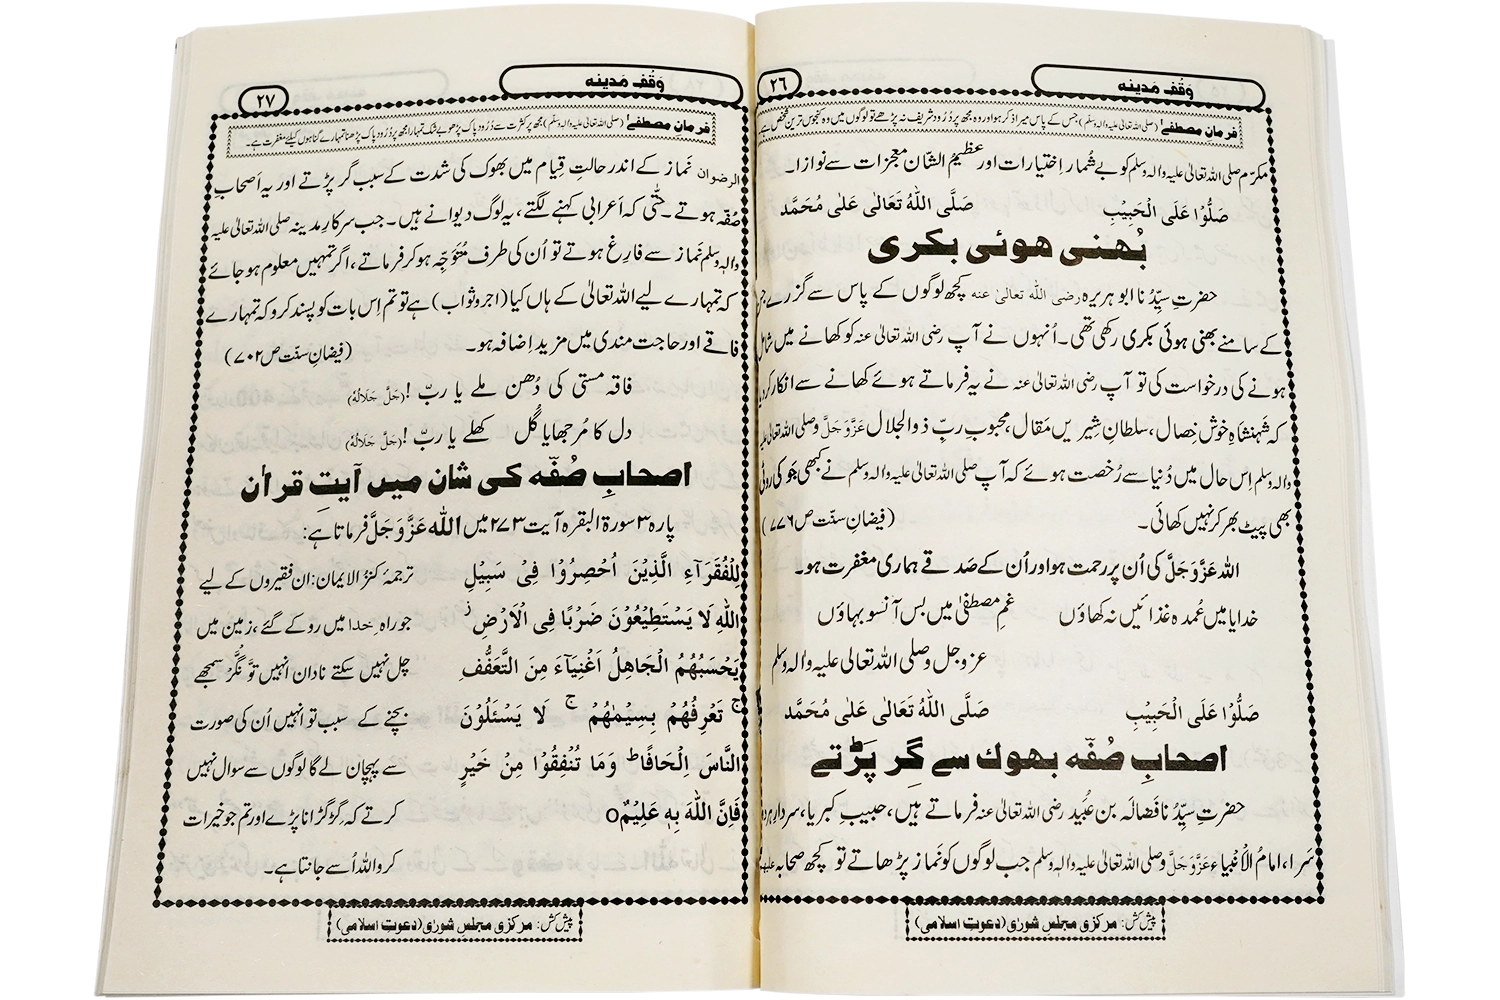 وَقْفِ مَدینہ
٢٦
فرمانِ مصطفےٰ (صلی اللہ تعالیٰ علیہ والہٖ وسلّم) جس کے پاس میرا ذکر ہو اور وہ مجھ پر دُرُود شریف نہ پڑھے تو لوگوں میں وہ کنجوس ترین شخص ہے۔
مکرّم صلی اللہ تعالیٰ علیہ والہٖ وسلم کو بے شمار اِختیارات اور عظیمُ الشّان معجزات سے نوازا۔
صَلُّوْا عَلَی الْحَبِیْبِ صَلَّی اللہُ تَعَالٰی عَلٰی مُحَمَّد
بُھنی ھوئی بکری
حضرتِ سیِّدُنا ابو ہریرہ رضی اللہ تعالیٰ عنہ کچھ لوگوں کے پاس سے گزرے جن
کے سامنے بھنی ہوئی بکری رکھی تھی۔ اُنہوں نے آپ رضی اللہ تعالیٰ عنہ کو کھانے میں شامل
ہونے کی درخواست کی تو آپ رضی اللہ تعالیٰ عنہ نے یہ فرماتے ہوئے کھانے سے انکار کردیا
کہ شَہَنشاہِ خوش خِصال، سلطانِ شِیریں مَقال، محبوبِ ربِّ ذوالجلال عَزَّوَجَلَّ وصلی اللہ تعالیٰ علیہ
والہٖ وسلم اِس حال میں دُنیا سے رُخصت ہوئے کہ آپ صلی اللہ تعالیٰ علیہ والہٖ وسلم نے کبھی جَو کی روٹی
بھی پیٹ بھر کر نہیں کھائی۔ (فیضانِ سنّت ص ٧٧٦)
اللہ عَزَّوَجَلَّ کی اُن پر رحمت ہو اور اُن کے صَدقے ہماری مغفرت ہو۔
خدایا میں عُمدہ غذائیں نہ کھاؤں غمِ مصطفیٰ میں بس آنسو بہاؤں
عزوجل وصلی اللہ تعالیٰ علیہ والہٖ وسلم
صَلُّوْا عَلَی الْحَبِیْبِ صَلَّی اللہُ تَعَالٰی عَلٰی مُحَمَّد
اصحابِ صُفّہ بھوک سے گِر پَڑتے
حضرتِ سیِّدُنا فَضالَہ بن عُبید رضی اللہ تعالیٰ عنہ فرماتے ہیں، حبیبِ کبریا، سردارِ ہر دو
سَرا، امامُ الْاَنبیاء عَزَّوَجَلَّ وصلی اللہ تعالیٰ علیہ والہٖ وسلم جب لوگوں کو نَماز پڑھاتے تو کچھ صحابہ علیہم
پیش کش: مرکزی مجلسِ شوریٰ (دعوتِ اسلامی)
وَقْفِ مَدینہ
٢٧
فرمانِ مصطفےٰ (صلی اللہ تعالیٰ علیہ والہٖ وسلّم) مجھ پر کثرت سے دُرُودِ پاک پڑھو بے شک تمہارا مجھ پر دُرُودِ پاک پڑھنا تمہارے گناہوں کیلئے مغفرت ہے۔
الرضوان نَماز کے اندر حالتِ قِیام میں بھوک کی شدت کے سبب گر پڑتے اور یہ اَصحابِ
صُفّہ ہوتے۔ حتّٰی کہ اَعرابی کہنے لگتے، یہ لوگ دیوانے ہیں۔ جب سرکارِ مدینہ صلی اللہ تعالیٰ علیہ
والہٖ وسلم نَماز سے فارِغ ہوتے تو اُن کی طرف مُتَوَجِّہ ہو کر فرماتے، اگر تمہیں معلوم ہو جائے
کہ تمہارے لیے اللہ تعالیٰ کے ہاں کیا (اجر و ثواب) ہے تو تم اِس بات کو پسند کرو کہ تمہارے
فاقے اور حاجت مندی میں مزید اِضافہ ہو۔ (فیضانِ سنّت ص ٧٠٢)
فاقہ مستی کی دُھن ملے یا ربّ! (جَلَّ جَلَالُہٗ)
دل کا مُرجھایا گُل کھلے یا ربّ! (جَلَّ جَلَالُہٗ)
اصحابِ صُفّہ کی شان میں آیتِ قراٰن
پارہ ٣ سورۃ البقرہ آیت ٢٧٣ میں اللہ عَزَّوَجَلَّ فرماتا ہے:
لِلْفُقَرَآءِ الَّذِیْنَ اُحْصِرُوْا فِیْ سَبِیْلِ ترجمۂ کنزُ الایمان: ان فقیروں کے لیے
اللہِ لَا یَسْتَطِیْعُوْنَ ضَرْبًا فِی الْاَرْضِ ز جو راہِ خدا میں روکے گئے، زمین میں
یَحْسَبُهُمُ الْجَاهِلُ اَغْنِیَآءَ مِنَ التَّعَفُّفِ چل نہیں سکتے نادان انہیں تونگر سمجھے
ج تَعْرِفُهُمْ بِسِیْمٰهُمْ ج لَا یَسْئَلُوْنَ بچنے کے سبب تو انہیں اُن کی صورت
النَّاسَ اِلْحَافًا ط وَمَا تُنْفِقُوْا مِنْ خَیْرٍ سے پہچان لے گا لوگوں سے سوال نہیں
فَاِنَّ اللہَ بِهٖ عَلِیْمٌ ○ کرتے کہ گِڑگڑانا پڑے اور تم جو خیرات
کرو اللہ اُسے جانتا ہے۔
پیش کش: مرکزی مجلسِ شوریٰ (دعوتِ اسلامی)